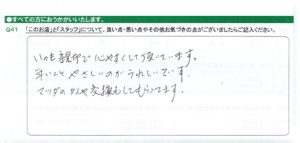 ●すべての方におうかがいいたします。
Q41 「このお店」と「スタッフ」について、良い点・悪い点やその他お気づきの点がございましたらご記入ください。
いつも親切でにやすくして頂いています。
やさしいのがうれしいです。
マツダのタイヤ交換もしてもらってます。